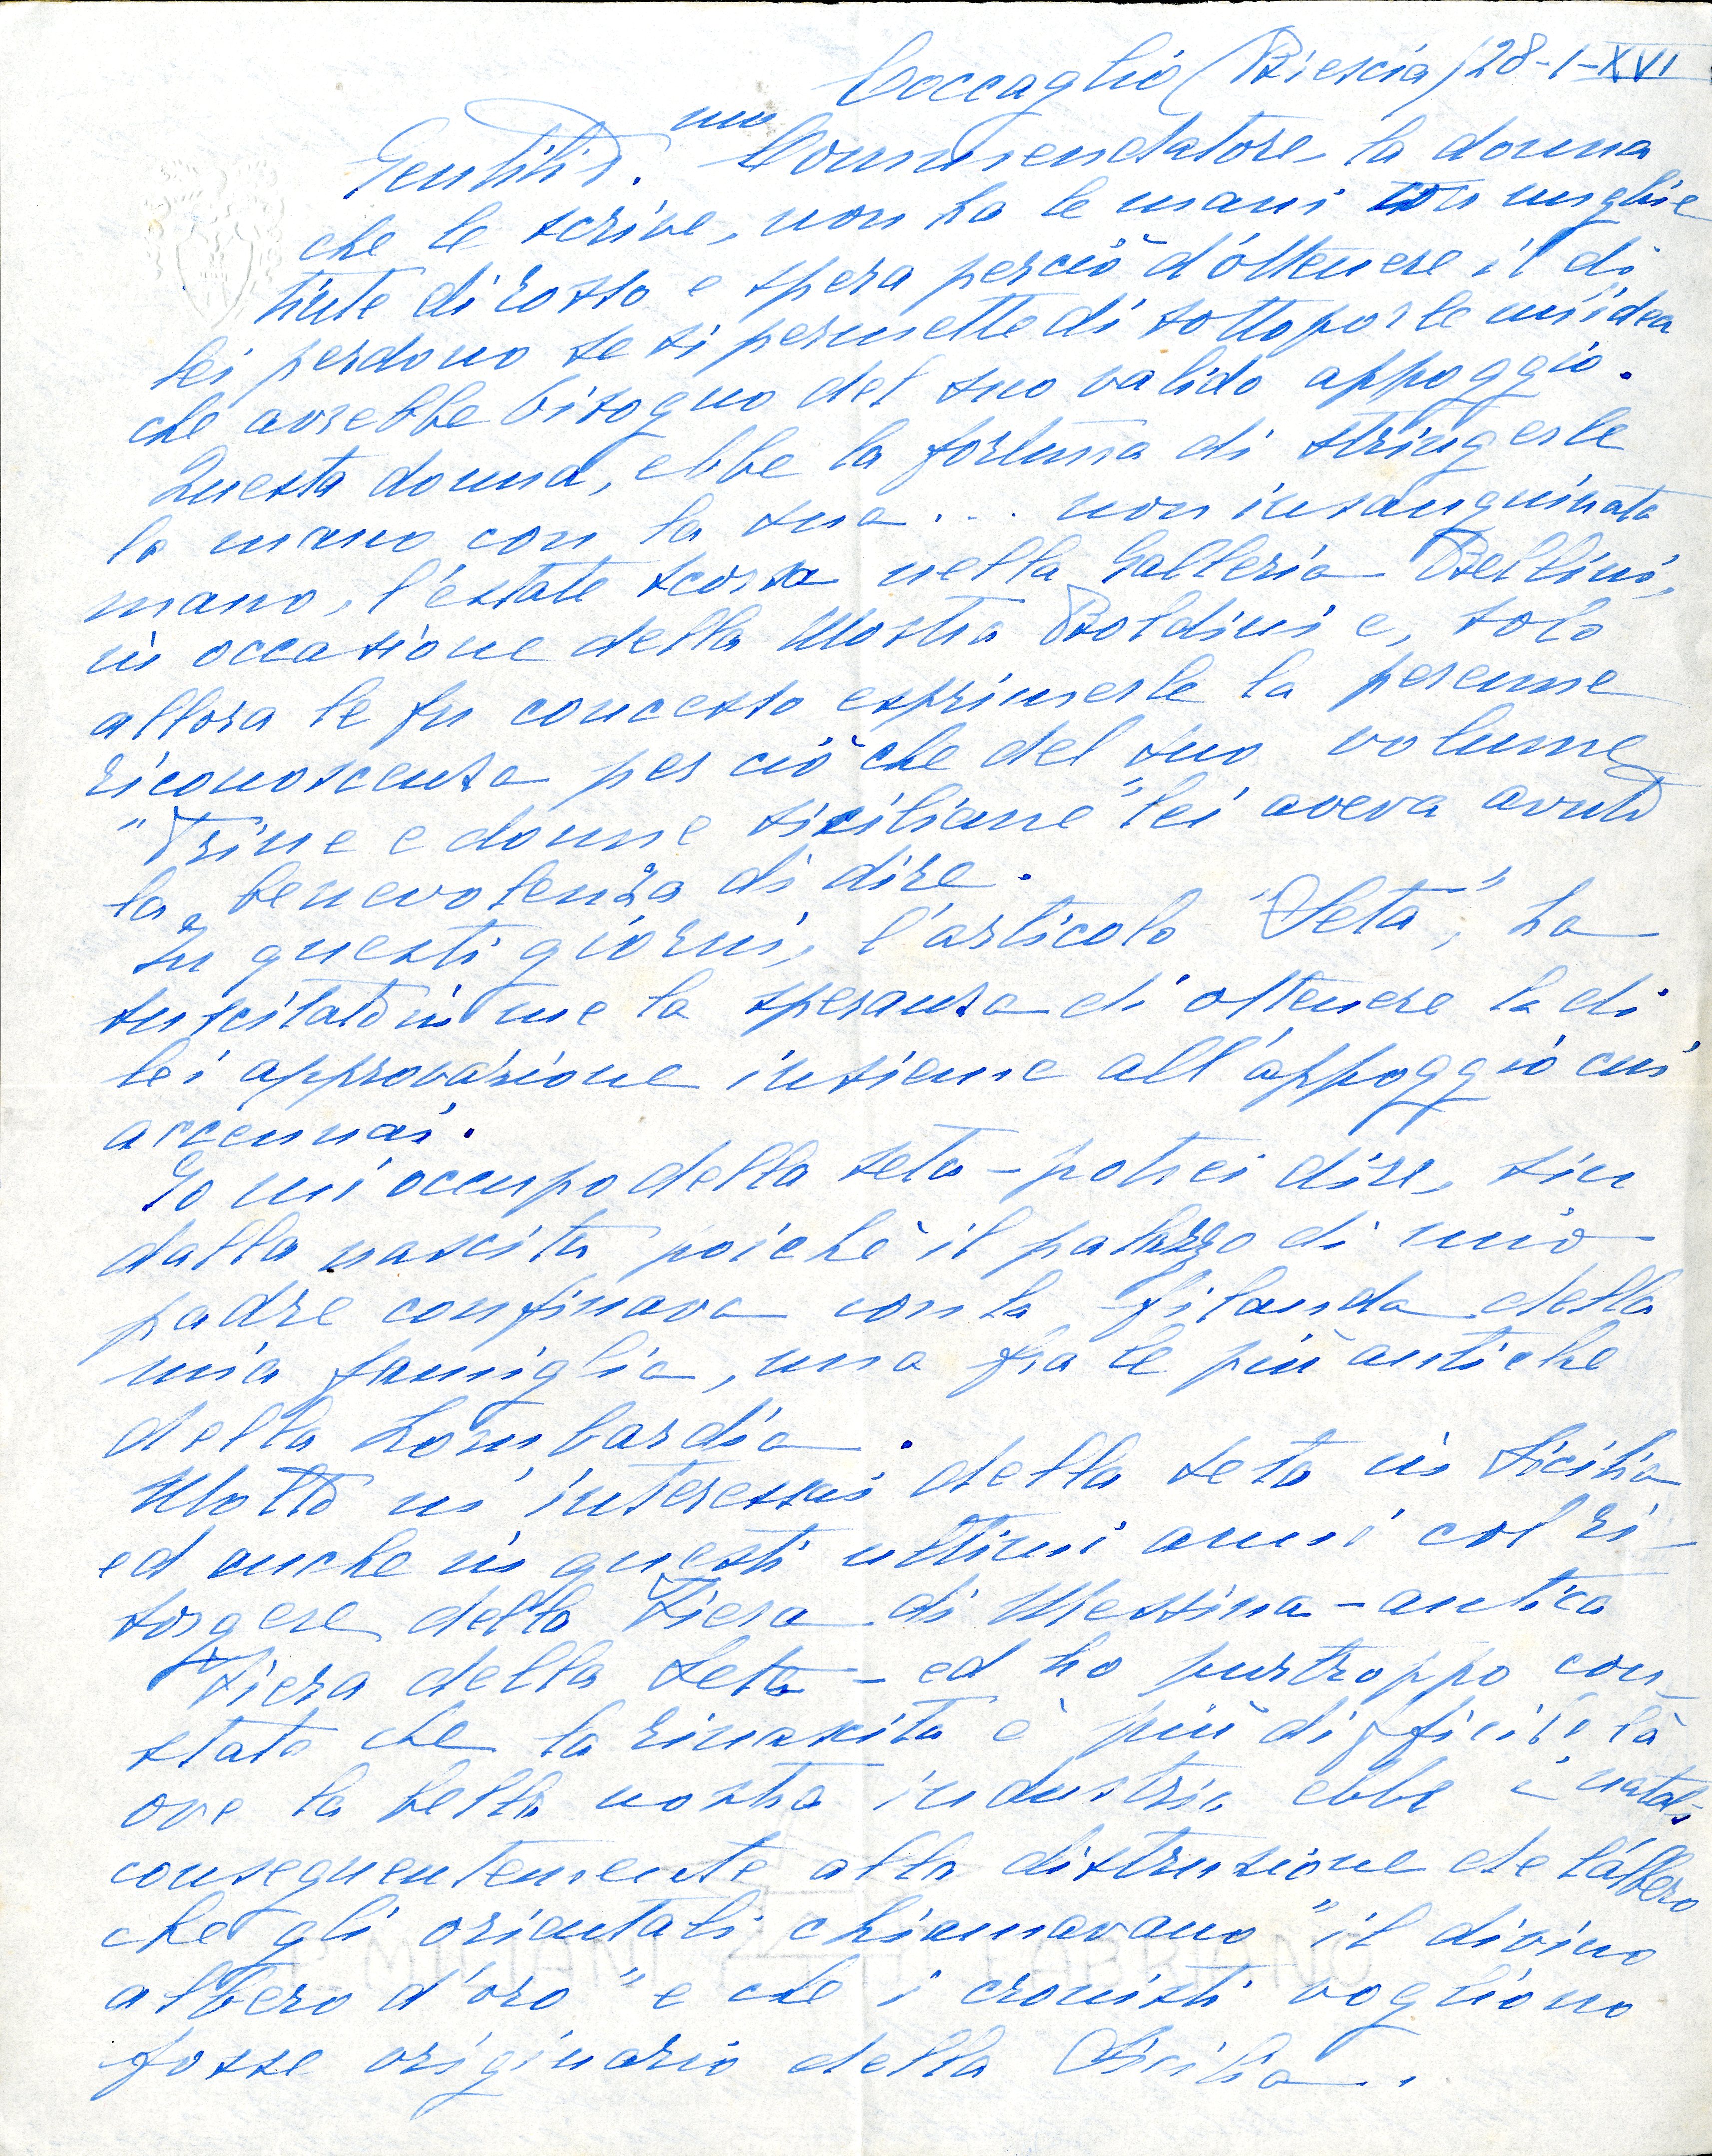 Coccaglio (Brescia) 28-1-XVI
Gentiliss.mo Commendatore, la donna
che le scrive, non ha le mani con unghie
tinte di rosso e spera perciò d'ottenere il di
lei perdono se si permette di sottoporle un'idea
che avrebbe bisogno del suo valido appoggio.
Questa donna, ebbe la fortuna di stringerle
la mano con la sua... non insanguinata
mano, l'estate scorsa nella Galleria Bellini,
in occasione della Mostra Boldini e, solo
allora le fu concesso esprimerle la perenne
riconoscenza per ciò che del suo volume
"Trine e donne siciliane" lei aveva avuto
la benevolenza di dire.
In questi giorni, l'articolo "Seta", ha
suscitato in me la speranza di ottenere la di
lei approvazione insieme all'appoggio cui
accennai.
Io mi occupo della seta - potrei dire, sin
dalla nascita poichè il palazzo di mio
padre confinava con la filanda della
mia famiglia, una fra le più antiche
della Lombardia.
Molto m'interessai della seta in Sicilia
ed anche in questi ultimi anni col ri-
sorgere della Fiera di Messina - antica
Fiera della Seta - ed ho purtroppo con-
stato che la rinascita è più difficile là
ove la bella nostra industria ebbe i natali
conseguentemente alla distruzione de l'albero
che gli orientali chiamavano "il divino
albero d'oro" e che i cronisti vogliono
fosse originario della Sicilia.
P. MILIANI FABRIANO